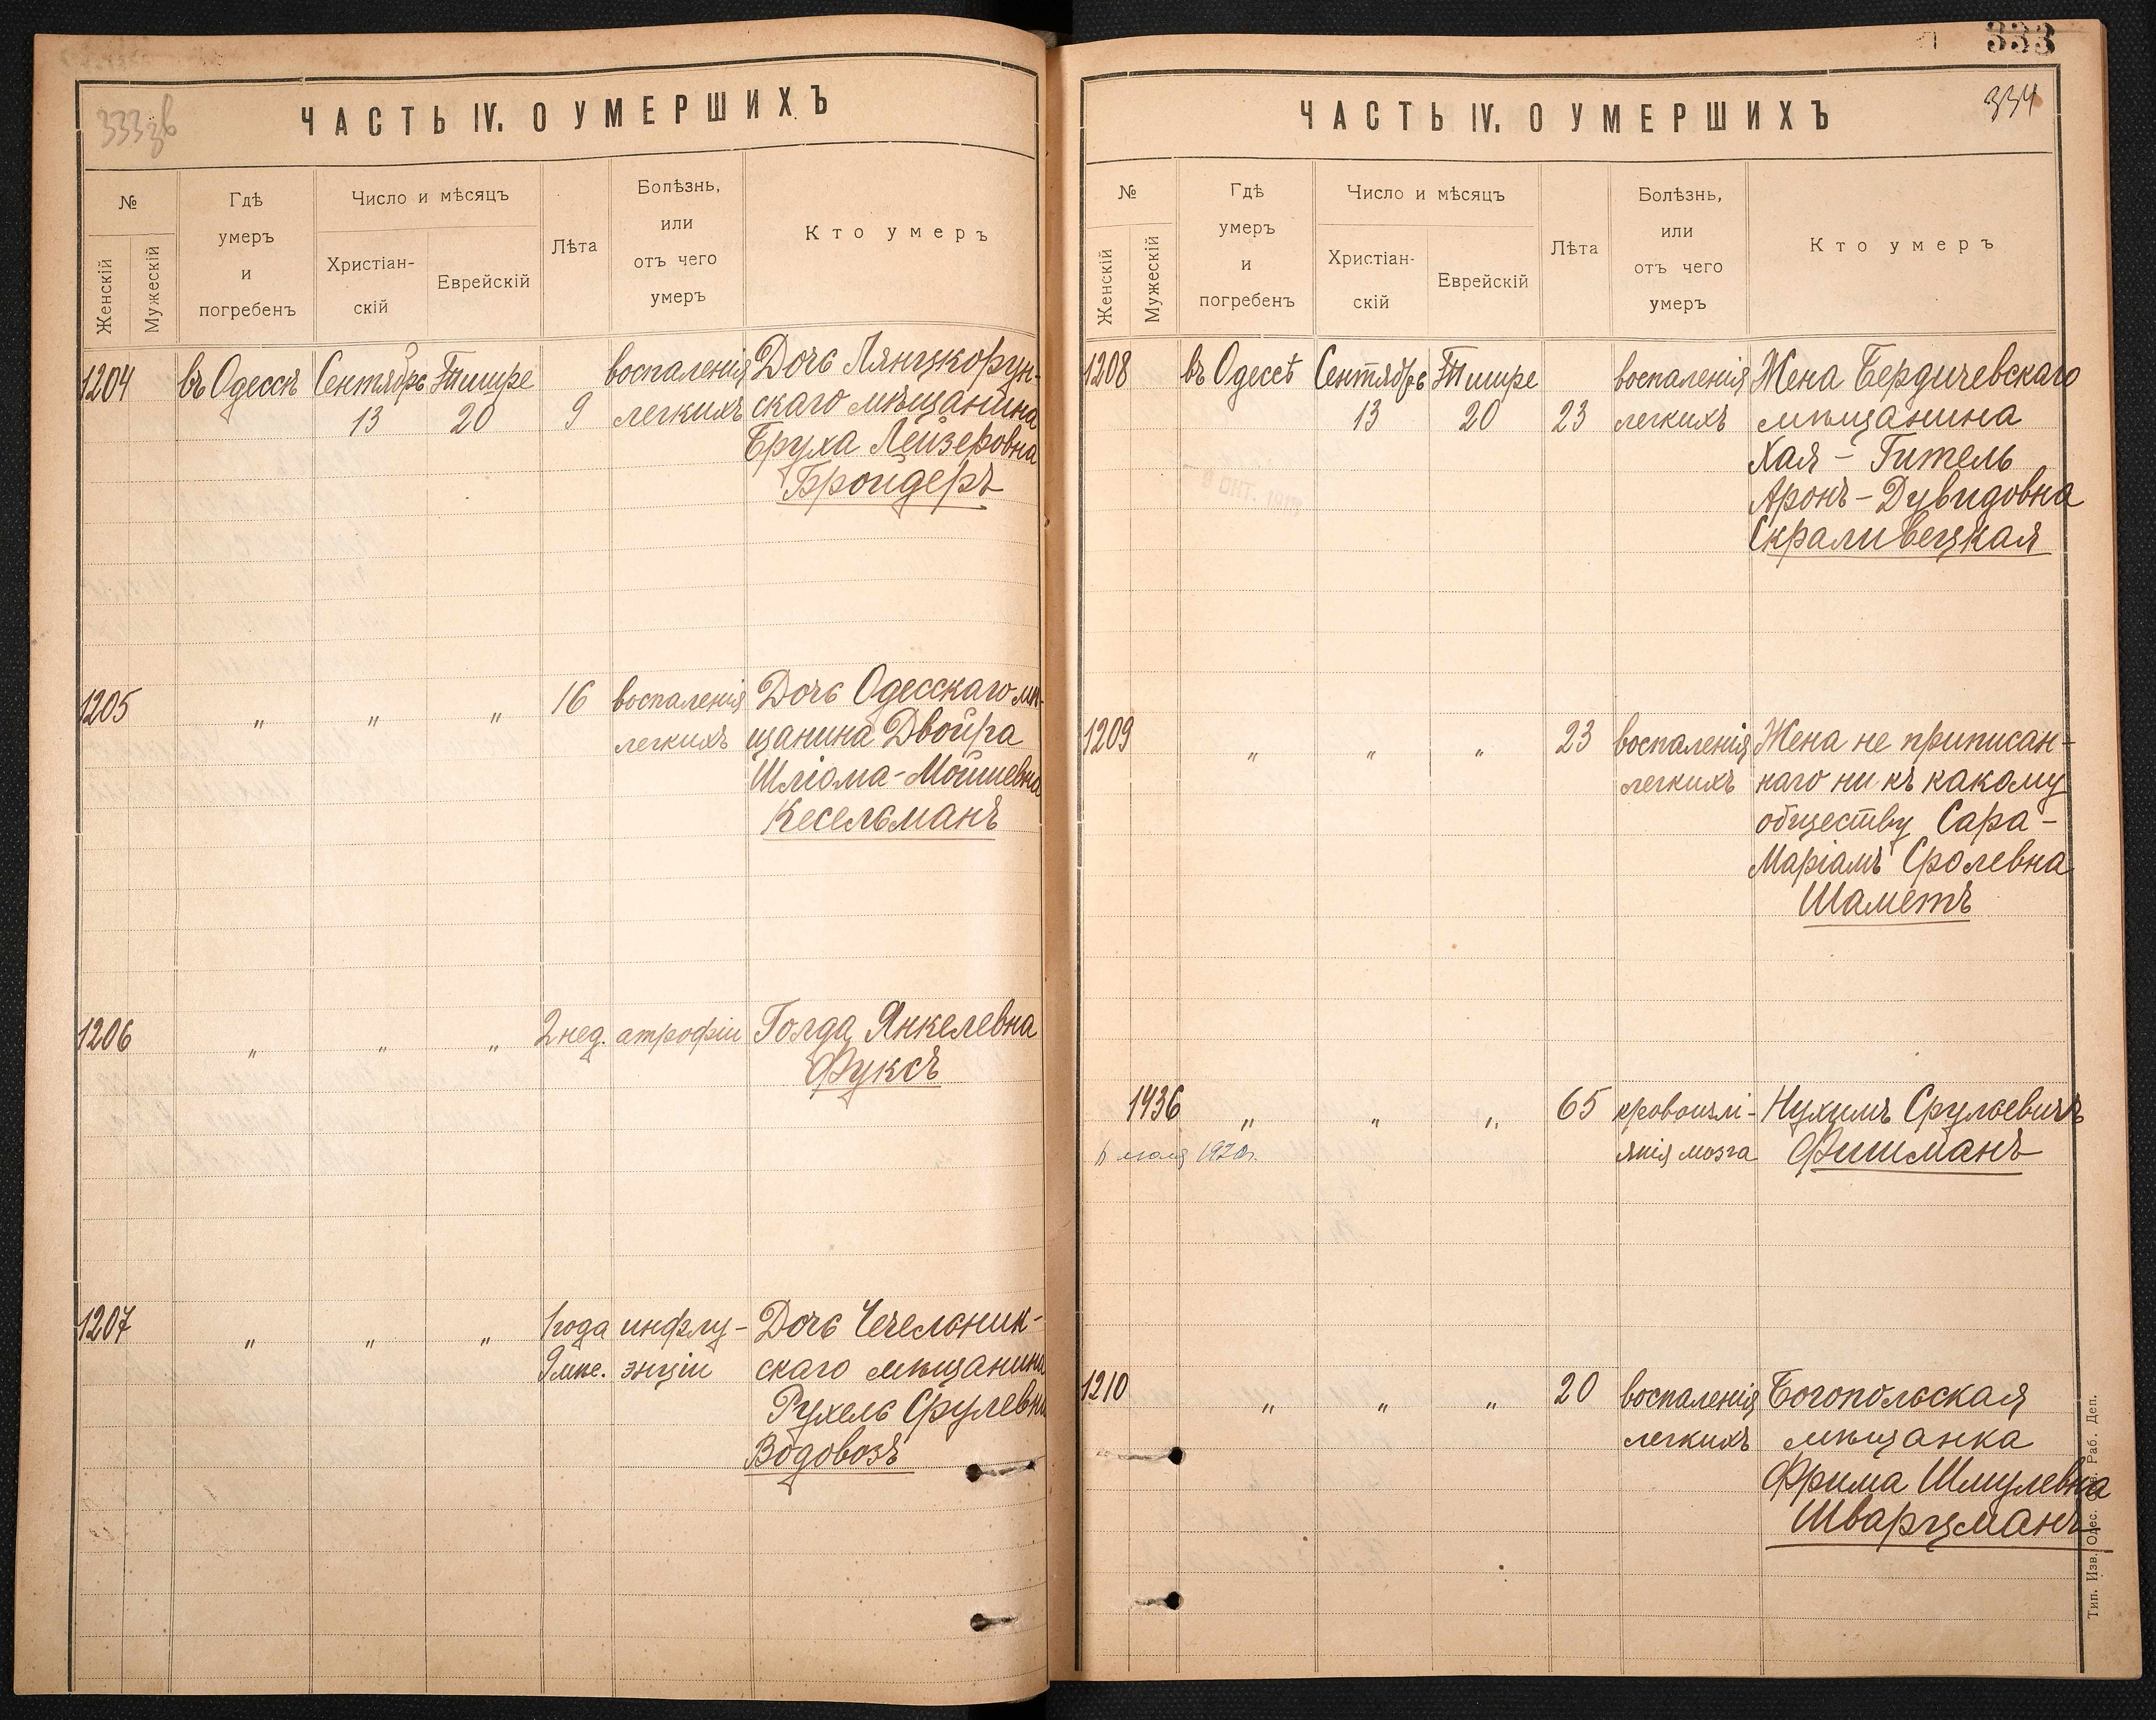 333 зв
ЧАСТЬ IV. О УМЕРШИХЪ
№
Женскій
Мужескій
Гдѣ
умеръ
и
погребенъ
Число и мѣсяцъ
Христіан-
скій
Еврейскій
Лѣта
Болѣзнь,
или
отъ чего
умеръ
Кто умеръ
1204 въ Одессѣ Сентябрь Тишре воспаленія Дочь Лянцкорун-
13 20 9 легкихъ скаго мѣщанина
Бруха Лейзеровна
Бройдеръ
1205 " " " 16 воспаленія Дочь Одесскаго мѣ-
легкихъ щанина Двойра
Шліома-Мошиевна
Кесельманъ
1206 " " " 2 нед. атрофіи Голда Янкелевна
Фуксъ
1207 " " " 1 года инфлу- Дочь Чечельник-
9 мѣс. энціи скаго мѣщанина
Рухель Срулевна
Водовозъ
333
334
ЧАСТЬ IV. О УМЕРШИХЪ
№
Женскій
Мужескій
Гдѣ
умеръ
и
погребенъ
Число и мѣсяцъ
Христіан-
скій
Еврейскій
Лѣта
Болѣзнь,
или
отъ чего
умеръ
Кто умеръ
1208 въ Одессѣ Сентябрь Тишре воспаленія Жена Бердичевскаго
13 20 23 легкихъ мѣщанина
Хая - Гитель
Аронъ-Дувидовна
Скраливецкая
ОКТ.
1209 " " " 23 воспаленія Жена не приписан-
легкихъ наго ни къ какому
обществу Сара-
Маріамъ Сролевна
Шаметъ
1436 " " " 65 кровоизлі- Нухимъ Срулевичъ
янія мозга Фишманъ
мая 1920г.
1210 " " " 20 воспаленія Богопольская
легкихъ мѣщанка
Фрима Шмулевна
Шварцманъ
Тип. Изв. Одес. Раб. Деп.